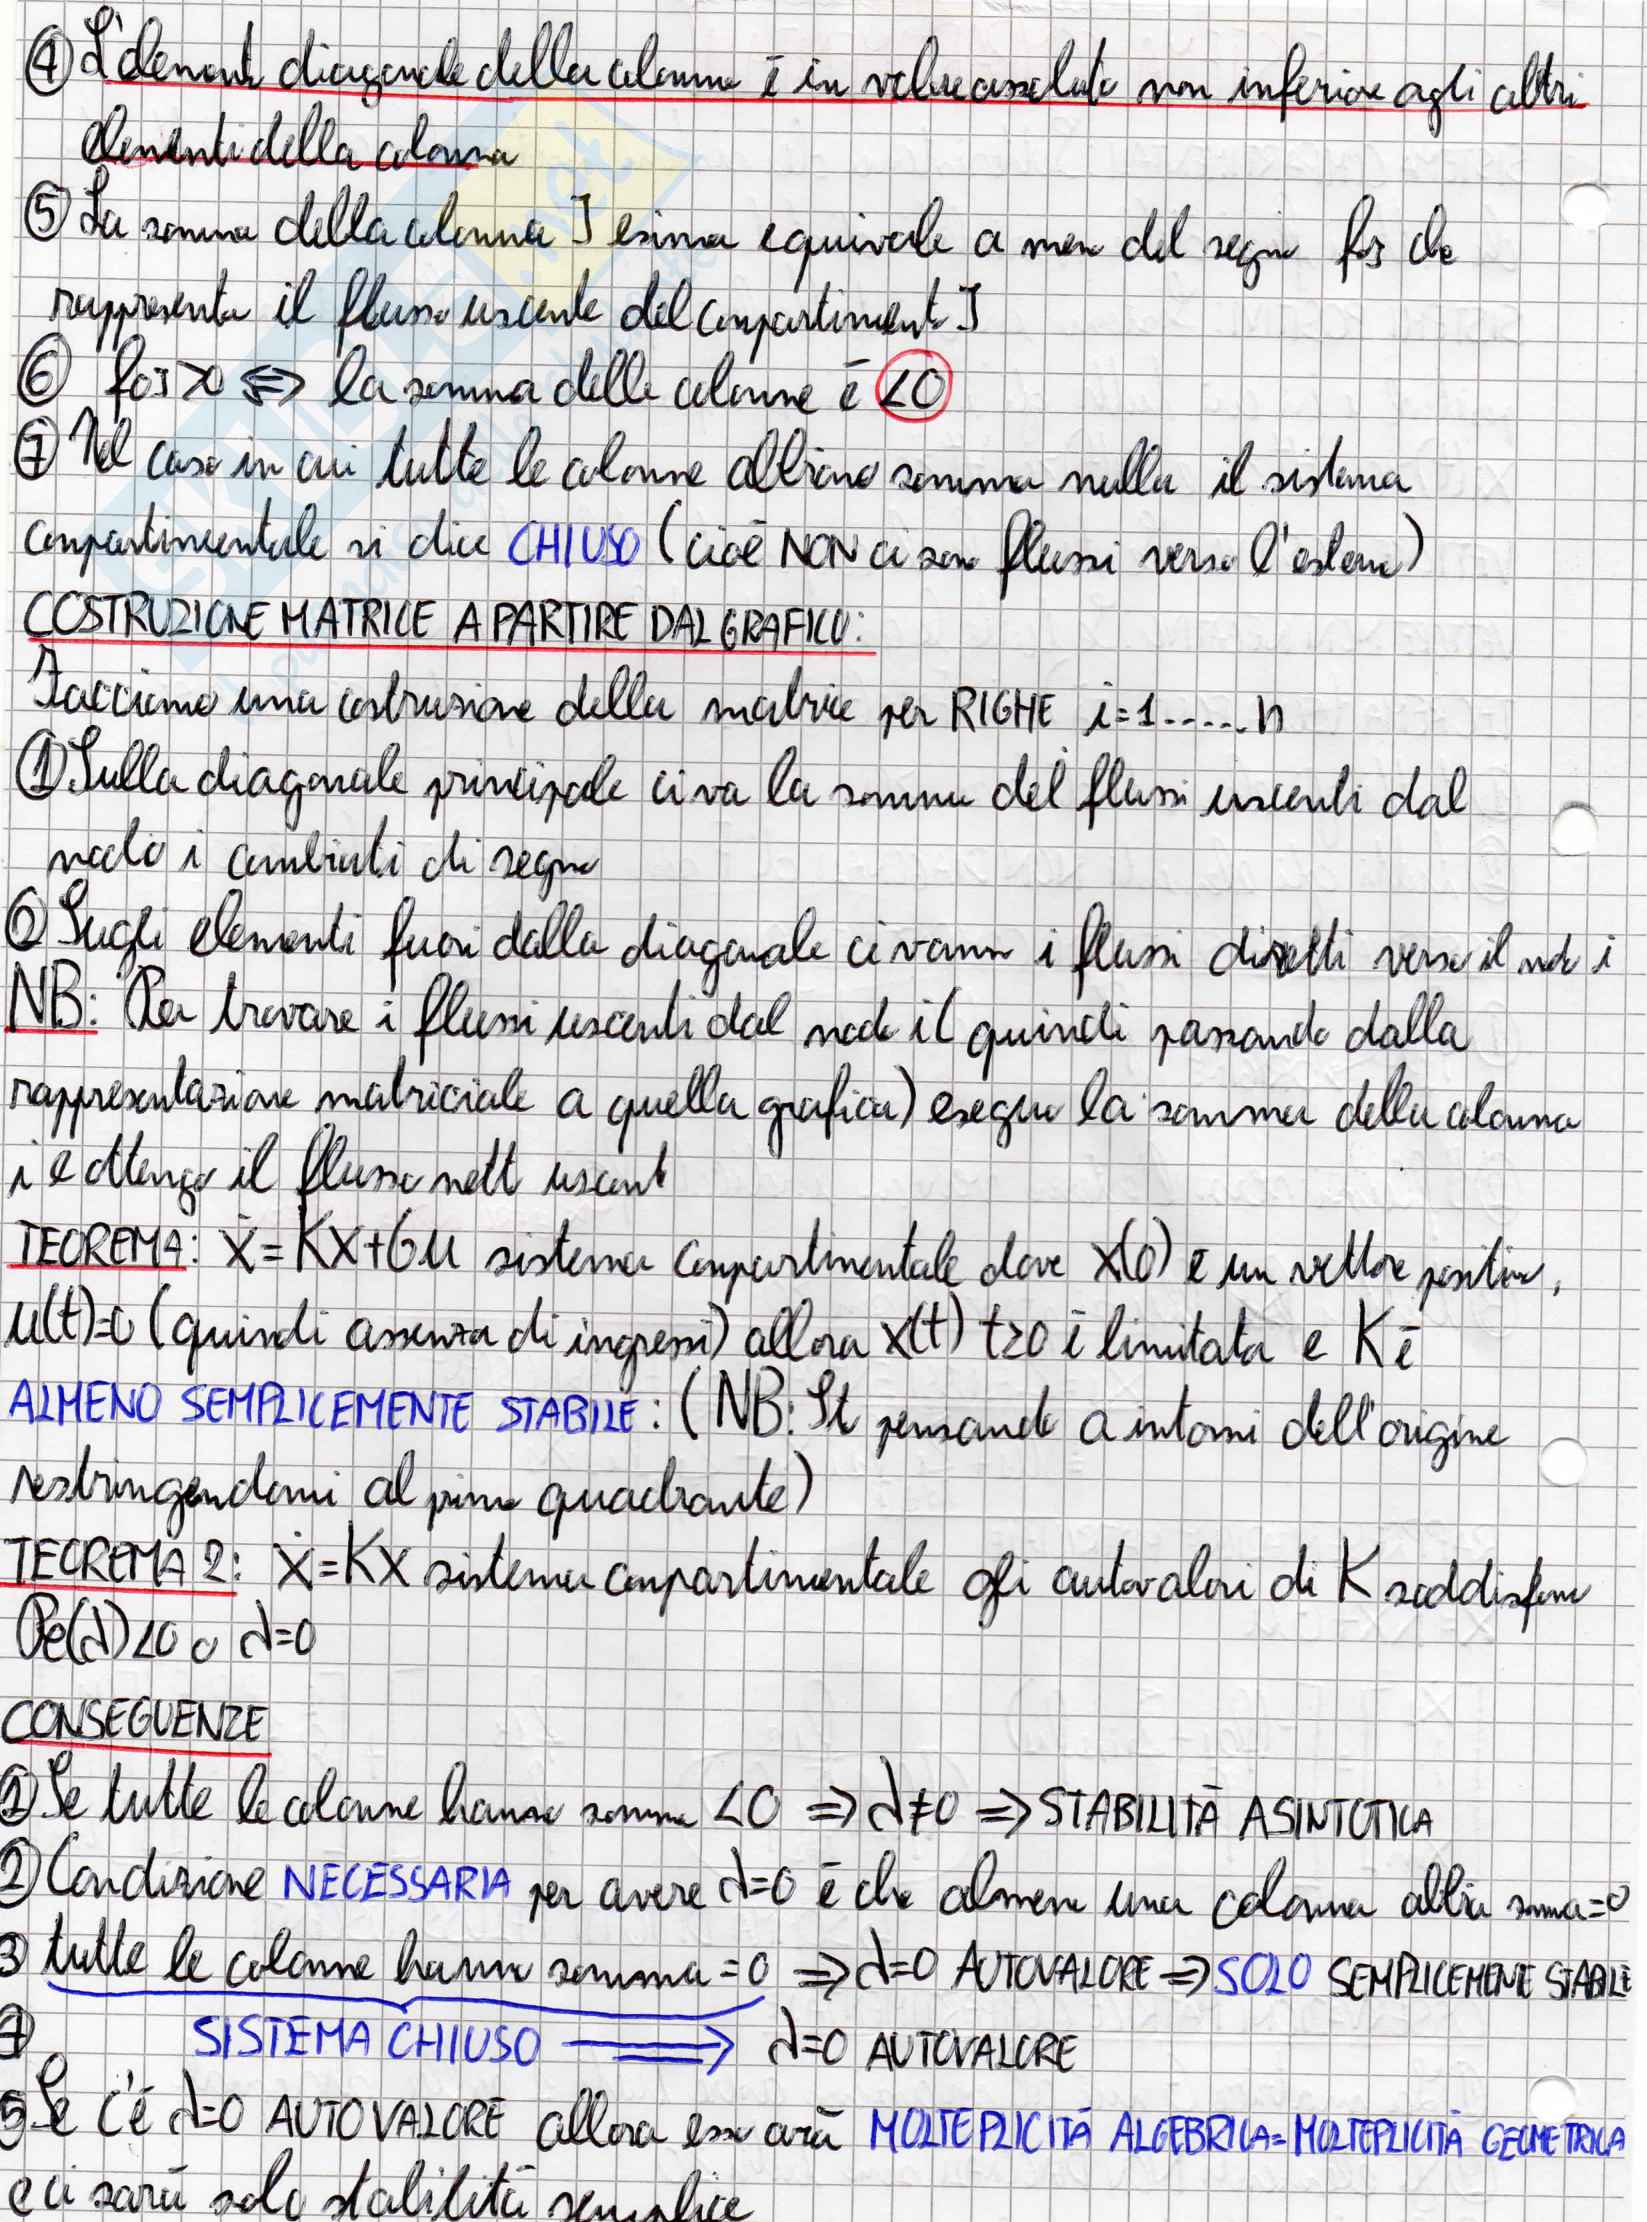 ④ L'elemento diagonale della colonna è in valore assoluto non inferiore agli altri
elementi della colonna
⑤ La somma della colonna J esima equivale a meno del segno f0J che
rappresenta il flusso uscente dal compartimento J
⑥ f0J>0 ⇔ la somma delle colonne è <0
⑦ Nel caso in cui tutte le colonne abbiano somma nulla il sistema
compartimentale si dice CHIUSO (cioè NON ci sono flussi verso l'esterno)
COSTRUZIONE MATRICE A PARTIRE DAL GRAFICO:
Facciamo una costruzione della matrice per RIGHE i=1.....n
① Sulla diagonale principale ci va la somma dei flussi uscenti dal
nodo i cambiati di segno
② Sugli elementi fuori dalla diagonale ci vanno i flussi diretti verso il nodo i
NB: Per trovare i flussi uscenti dal nodo i (quindi passando dalla
rappresentazione matriciale a quella grafica) eseguo la somma della colonna
i e ottengo il flusso netto uscente
TEOREMA: ẋ=Kx+Gu sistema compartimentale dove x(0) è un vettore positivo,
u(t)=0 (quindi assenza di ingressi) allora x(t) t≥0 è limitata e K è
ALMENO SEMPLICEMENTE STABILE: (NB: Sto pensando a intorni dell'origine
restringendomi al primo quadrante)
TEOREMA 2: ẋ=Kx sistema compartimentale gli autovalori di K soddisfano
Re(λ)<0 o λ=0
CONSEGUENZE
① Se tutte le colonne hanno somma <0 ⇒ λ≠0 ⇒ STABILITÀ ASINTOTICA
② Condizione NECESSARIA per avere λ=0 è che almeno una colonna abbia somma=0
③ tutte le colonne hanno somma=0 ⇒ λ=0 AUTOVALORE ⇒ SOLO SEMPLICEMENTE STABILE
④ SISTEMA CHIUSO ⟹ λ=0 AUTOVALORE
⑤ Se c'è λ=0 AUTOVALORE allora esso avrà MOLTEPLICITÀ ALGEBRICA=MOLTEPLICITÀ GEOMETRICA
e ci sarà solo stabilità semplice